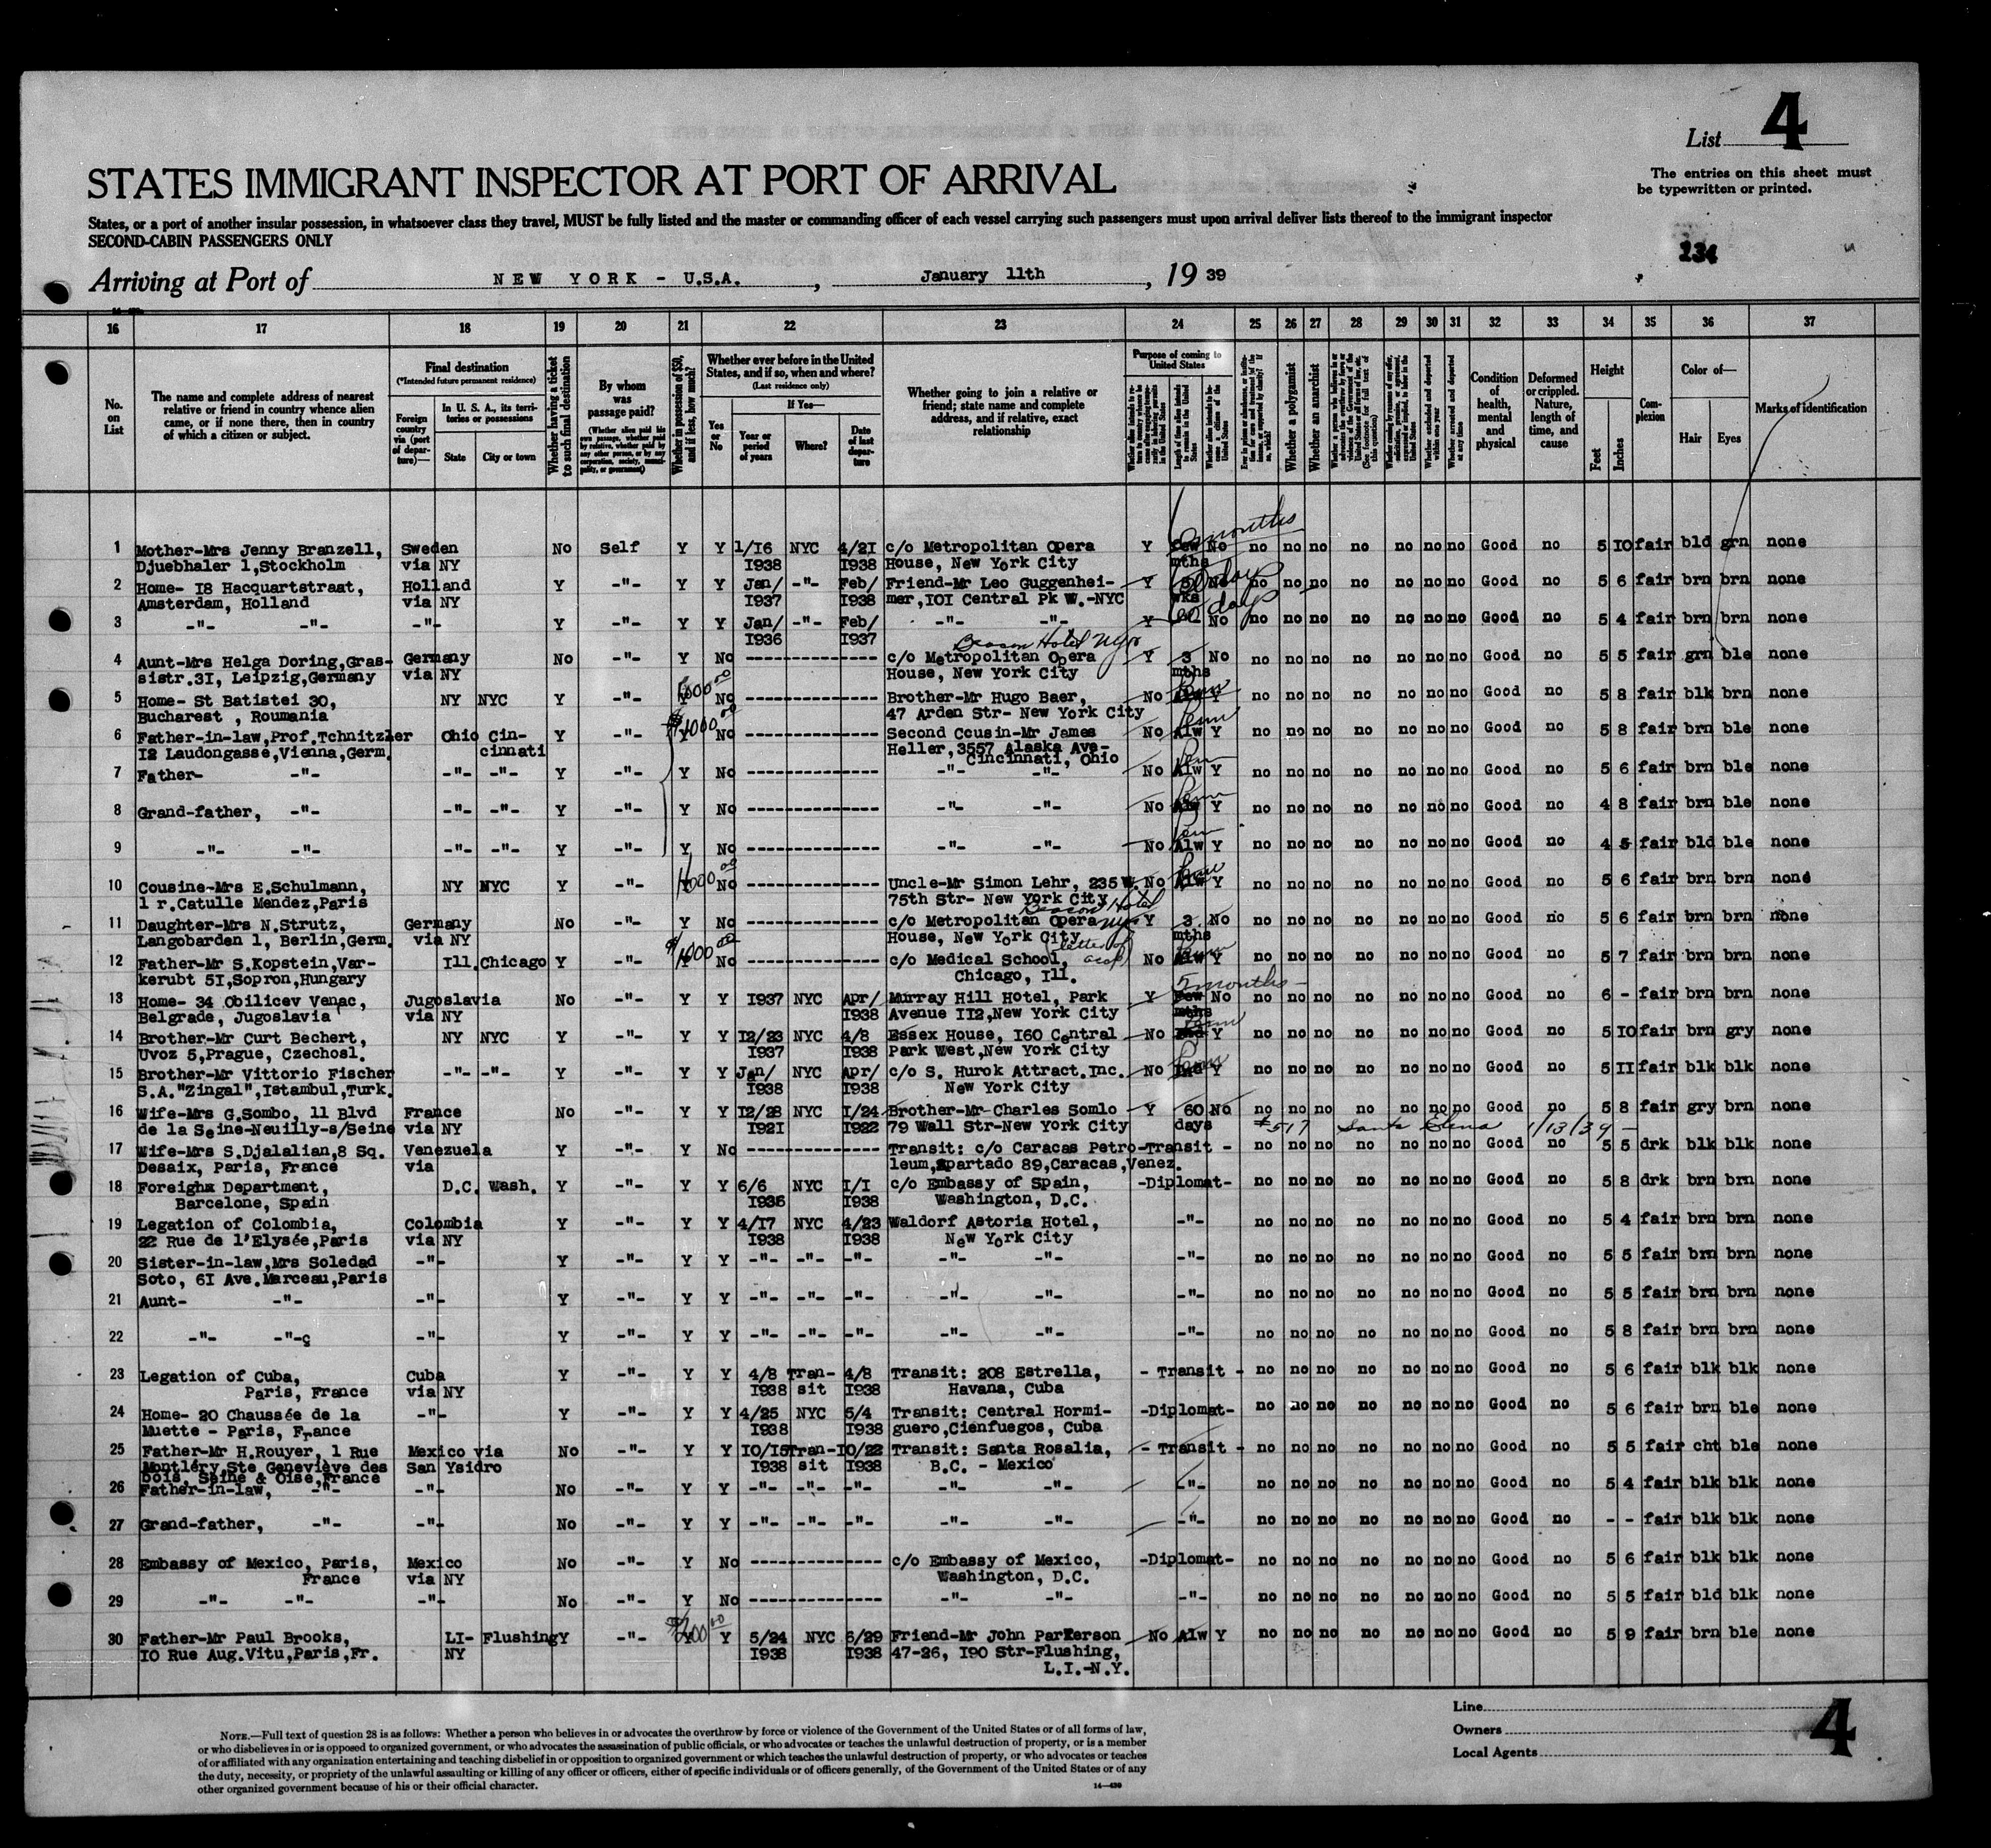 List 4
The entries on this sheet must
be typewritten or printed.
STATES IMMIGRANT INSPECTOR AT PORT OF ARRIVAL
States, or a port of another insular possession, in whatsoever class they travel, MUST be fully listed and the master or commanding officer of each vessel carrying such passengers must upon arrival deliver lists thereof to the immigrant inspector
SECOND-CABIN PASSENGERS ONLY
234
Arriving at Port of NEW YORK - U.S.A. , January 11th , 19 39
16 17 18 19 20 21 22 23 24 25 26 27 28 29 30 31 32 33 34 35 36 37
No. on List
The name and complete address of nearest relative or friend in country whence alien came, or if none there, then in country of which a citizen or subject.
Final destination
(*Intended future permanent residence)
Foreign country via (port of departure)—
In U. S. A., its territories or possessions
State City or town
Whether having a ticket to such final destination
By whom was passage paid?
(Whether alien paid his own passage, whether paid by relative, whether paid by any other person, or by any corporation, society, municipality, or government)
Whether in possession of $50, and if less, how much?
Whether ever before in the United States, and if so, when and where?
(Last residence only)
Yes or No
If Yes—
Year or period of years Where? Date of last departure
Whether going to join a relative or friend; state name and complete address, and if relative, exact relationship
Purpose of coming to United States
Whether a polygamist
Whether an anarchist
Condition of health, mental and physical
Deformed or crippled. Nature, length of time, and cause
Height
Feet Inches
Complexion
Color of—
Hair Eyes
Marks of identification
2 months
1 Mother-Mrs Jenny Branzell, Sweden No Self Y Y 1/16 NYC 4/21 c/o Metropolitan Opera Y few No no no no no no no no Good no 5 10 fair bld grn none
Djuebhaler 1,Stockholm via NY 1938 1938 House, New York City mths
60 days
2 Home- 18 Hacquartstraat, Holland Y -"- Y Y Jan/ -"- Feb/ Friend-Mr Leo Guggenhei- Y No no no no no no no no Good no 5 6 fair brn brn none
Amsterdam, Holland via NY 1937 1938 mer,101 Central Pk W.-NYC wks
60 days
3 -"- -"- -"- Y -"- Y Y Jan/ -"- Feb/ -"- -"- Y No no no no no no no no Good no 5 4 fair brn brn none
1936 1937
Beacon Hotel NYC
4 Aunt-Mrs Helga Doring,Gras- Germany No -"- Y No -------------- c/o Metropolitan Opera Y 3 No no no no no no no no Good no 5 5 fair grn ble none
sistr.31, Leipzig,Germany via NY House, New York City mths
5 Home- St Batistei 30, NY NYC Y -"- Y No -------------- Brother-Mr Hugo Baer, No Alw Y no no no no no no no Good no 5 8 fair blk brn none
Bucharest , Roumania 47 Arden Str- New York City
$1000 00
6 Father-in-law,Prof.Tchnitzler Ohio Cin- Y -"- Y No -------------- Second Cousin-Mr James No Alw Y no no no no no no no Good no 5 8 fair brn ble none
12 Laudongasse,Vienna,Germ. cinnati Heller,3557 Alaska Ave-
Cincinnati, Ohio
7 Father- -"- -"- -"- Y -"- Y No -------------- -"- -"- No Alw Y no no no no no no no Good no 5 6 fair brn ble none
8 Grand-father, -"- -"- -"- Y -"- Y No -------------- -"- -"- No Alw Y no no no no no no no Good no 4 8 fair brn ble none
9 -"- -"- -"- -"- Y -"- Y No -------------- -"- -"- No Alw Y no no no no no no no Good no 4 5 fair bld ble none
10 Cousine-Mrs E.Schulmann, NY NYC Y -"- Y No -------------- Uncle-Mr Simon Lehr, 235 W. No Alw Y no no no no no no no Good no 5 6 fair brn brn none
1 r.Catulle Mendez,Paris 75th Str- New York City
Beacon Hotel NYC
11 Daughter-Mrs N.Strutz, Germany No -"- Y No -------------- c/o Metropolitan Opera Y 3 No no no no no no no no Good no 5 6 fair brn brn none
Langobarden 1, Berlin,Germ. via NY House, New York City mths
$1000 00
12 Father-Mr S.Kopstein,Var- Ill. Chicago Y -"- Y No -------------- c/o Medical School, No Alw Y no no no no no no no Good no 5 7 fair brn brn none
kerubt 51,Sopron,Hungary Chicago, Ill.
5 months
13 Home- 34 Obilicev Venac, Jugoslavia No -"- Y Y 1937 NYC Apr/ Murray Hill Hotel, Park Y Few No no no no no no no no Good no 6 - fair brn brn none
Belgrade, Jugoslavia via NY 1938 Avenue 112,New York City mths
14 Brother-Mr Curt Bechert, NY NYC Y -"- Y Y 12/23 NYC 4/8 Essex House, 160 Central No Y no no no no no no no Good no 5 10 fair brn gry none
Uvoz 5,Prague, Czechosl. 1937 1938 Park West,New York City
15 Brother-Mr Vittorio Fischer -"- -"- Y -"- Y Y Jan/ NYC Apr/ c/o S. Hurok Attract.Inc. No Y no no no no no no no Good no 5 11 fair blk blk none
S.A."Zingal",Istambul,Turk. 1938 1938 New York City
16 Wife-Mrs G.Sombo, 11 Blvd France No -"- Y Y 12/28 NYC 1/24 Brother-Mr-Charles Somlo Y 60 No no no no no no no no Good no 5 8 fair gry brn none
de la Seine-Neuilly-s/Seine via NY 1921 1922 79 Wall Str-New York City days
#517 Santa Elena 1/13/39
17 Wife-Mrs S.Djalalian,8 Sq. Venezuela Y -"- Y No -------------- Transit: c/o Caracas Petro-Transit - no no no no no no no Good no 5 5 drk blk blk none
Desaix, Paris, France via leum,Apartado 89,Caracas,Venez.
18 Foreign Department, D.C. Wash. Y -"- Y Y 6/6 NYC 1/1 c/o Embassy of Spain, -Diplomat- no no no no no no no Good no 5 8 drk brn brn none
Barcelone, Spain 1936 1938 Washington, D.C.
19 Legation of Colombia, Colombia Y -"- Y Y 4/17 NYC 4/23 Waldorf Astoria Hotel, -"- no no no no no no no Good no 5 4 fair brn brn none
22 Rue de l'Elysée,Paris via NY 1938 1938 New York City
20 Sister-in-law,Mrs Soledad -"- Y -"- Y Y -"- -"- -"- -"- -"- -"- no no no no no no no Good no 5 5 fair brn brn none
Soto, 61 Ave.Marceau,Paris
21 Aunt- -"- -"- Y -"- Y Y -"- -"- -"- -"- -"- -"- no no no no no no no Good no 5 5 fair brn brn none
22 -"- -"-ç -"- Y -"- Y Y -"- -"- -"- -"- -"- -"- no no no no no no no Good no 5 8 fair brn brn none
23 Legation of Cuba, Cuba Y -"- Y Y 4/8 Tran- 4/8 Transit: 208 Estrella, - Transit - no no no no no no no Good no 5 6 fair blk blk none
Paris, France via NY 1938 sit 1938 Havana, Cuba
24 Home- 20 Chaussée de la -"- Y -"- Y Y 4/25 NYC 5/4 Transit: Central Hormi- -Diplomat- no no no no no no no Good no 5 6 fair brn ble none
Muette - Paris, France 1938 1938 guero,Cienfuegos, Cuba
25 Father-Mr H.Rouyer, 1 Rue Mexico via No -"- Y Y 10/15 Tran- 10/22 Transit: Santa Rosalia, - Transit - no no no no no no no Good no 5 5 fair cht ble none
Montléry,Ste Geneviève des San Ysidro 1938 sit 1938 B.C. - Mexico
bois, Seine & Oise,France
26 Father-in-law, -"- -"- No -"- Y Y -"- -"- -"- -"- -"- -"- no no no no no no no Good no 5 4 fair blk blk none
27 Grand-father, -"- -"- No -"- Y Y -"- -"- -"- -"- -"- -"- no no no no no no no Good no - - fair blk blk none
28 Embassy of Mexico, Paris, Mexico No -"- Y No -------------- c/o Embassy of Mexico, -Diplomat- no no no no no no no Good no 5 6 fair blk blk none
France via NY Washington, D.C.
29 -"- -"- -"- No -"- Y No -------------- -"- -"- -"- no no no no no no no Good no 5 5 fair bld blk none
30 Father-Mr Paul Brooks, LI- Flushing Y -"- Y Y 5/24 NYC 6/29 Friend-Mr John Parkerson No Alw Y no no no no no no no Good no 5 9 fair brn ble none
10 Rue Aug.Vitu,Paris,Fr. NY 1938 1938 47-26, 190 Str-Flushing,
L.I.-N.Y.
NOTE.—Full text of question 28 is as follows: Whether a person who believes in or advocates the overthrow by force or violence of the Government of the United States or of all forms of law,
or who disbelieves in or is opposed to organized government, or who advocates the assassination of public officials, or who advocates or teaches the unlawful destruction of property, or is a member
of or affiliated with any organization entertaining and teaching disbelief in or opposition to organized government or which teaches the unlawful destruction of property, or who advocates or teaches
the duty, necessity, or propriety of the unlawful assaulting or killing of any officer or officers, either of specific individuals or of officers generally, of the Government of the United States or of any
other organized government because of his or their official character.
14—430
Line
Owners
Local Agents
4